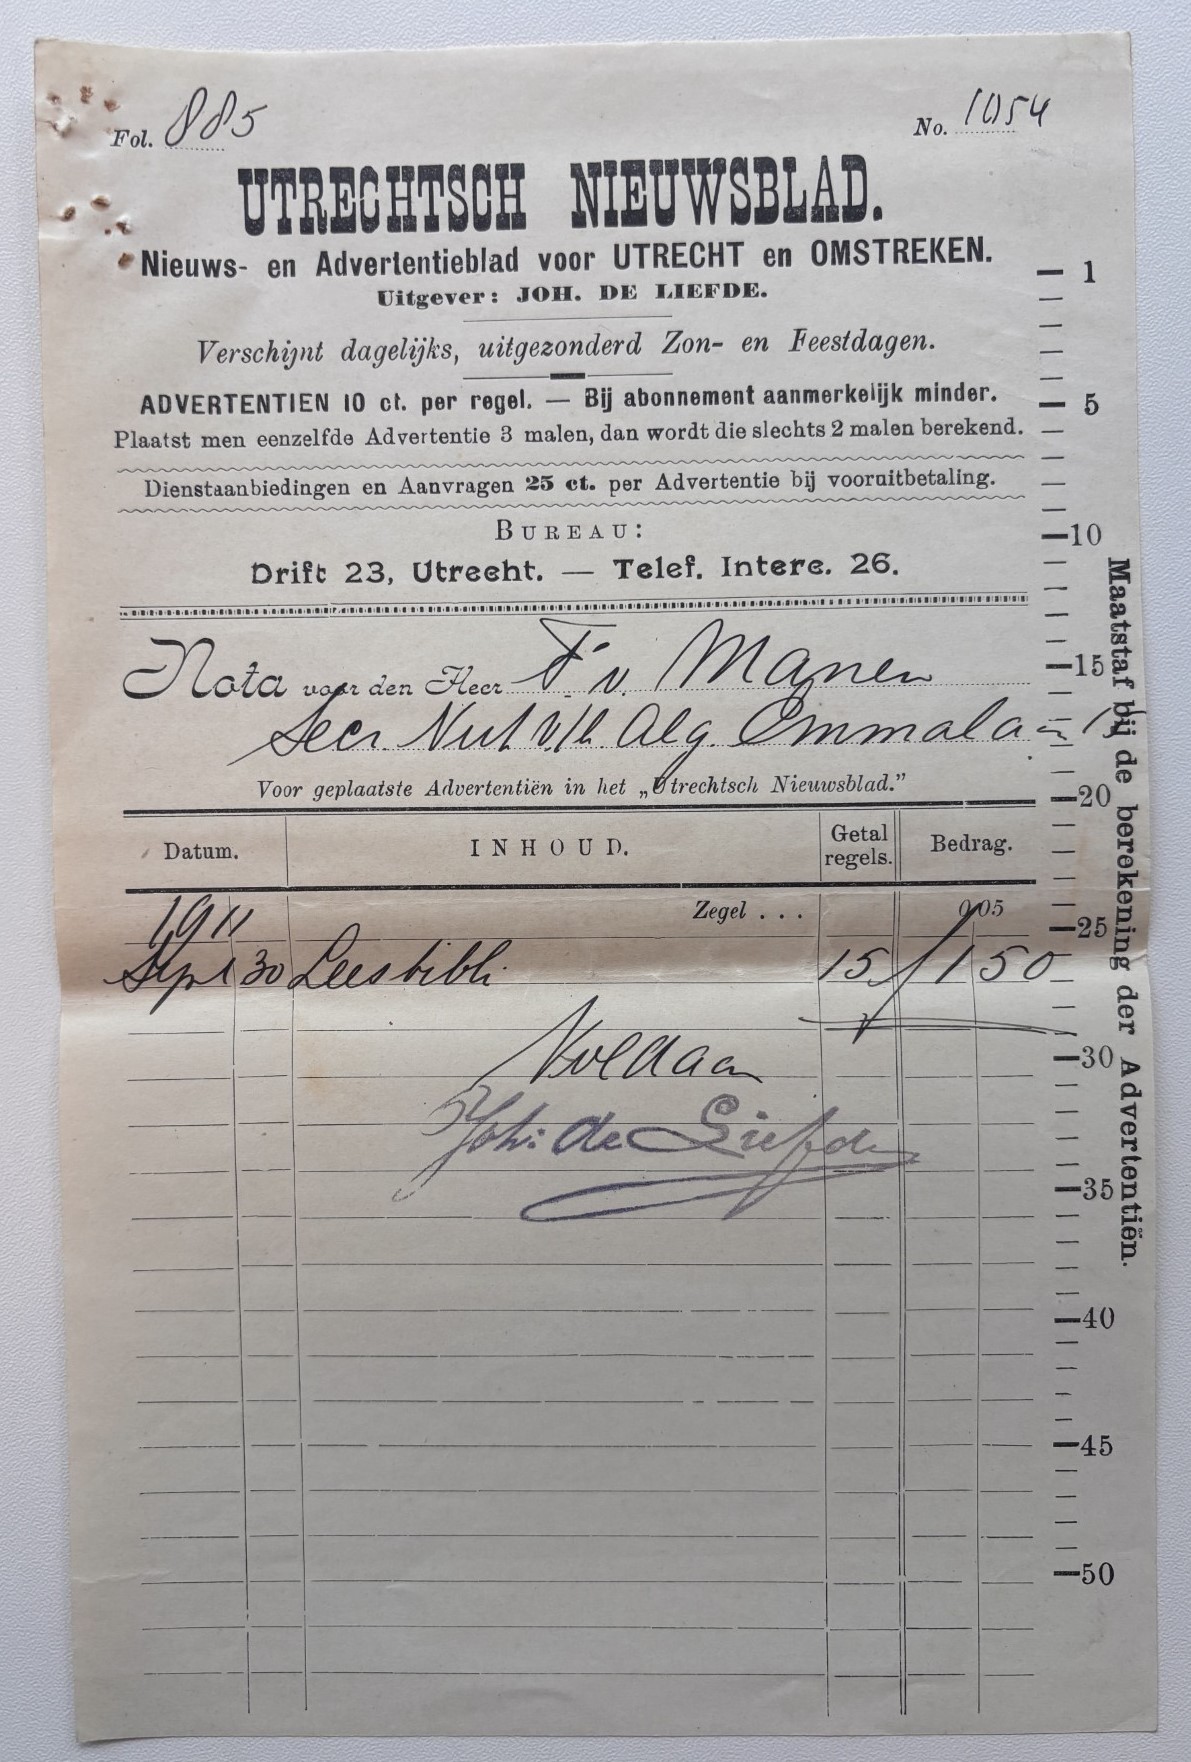 Fol. 885
No. 1054
UTRECHTSCH NIEUWSBLAD.
Nieuws- en Advertentieblad voor UTRECHT en OMSTREKEN.
Uitgever: JOH. DE LIEFDE.
Verschijnt dagelijks, uitgezonderd Zon- en Feestdagen.
ADVERTENTIEN 10 ct. per regel. — Bij abonnement aanmerkelijk minder.
Plaatst men eenzelfde Advertentie 3 malen, dan wordt die slechts 2 malen berekend.
Dienstaanbiedingen en Aanvragen 25 ct. per Advertentie bij vooruitbetaling.
BUREAU:
Drift 23, Utrecht. — Telef. Interc. 26.
Nota voor den Heer F. v. Manen
Secr. Nut v/h Alg. Emmalaan
Voor geplaatste Advertentiën in het „Utrechtsch Nieuwsblad.”
Datum. INHOUD. Getal regels. Bedrag.
1911 Zegel . . . 0,05
Sept 30 Leesbibli. 15 f 1 50
Voldaan
Joh: de Liefde
1
5
10
15
20
25
30
35
40
45
50
Maatstaf bij de berekening der Advertentiën.